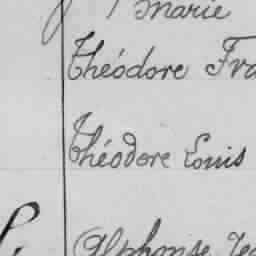 Marie
Théodore Fra
Théodore Louis
Alphonse Je